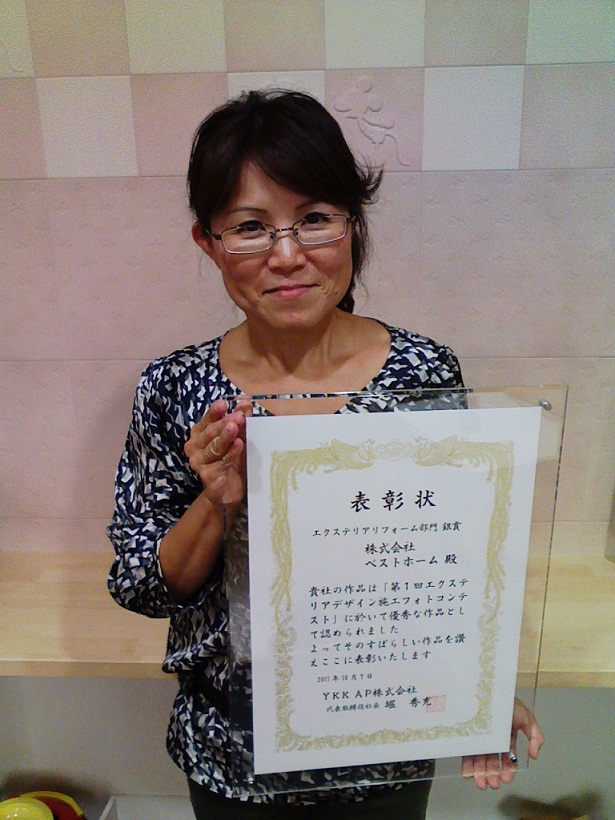 表彰状
エクステリアリフォーム部門 銀賞
株式会社
ベストホーム 殿
貴社の作品は「第1回エクステ
リアデザイン施工フォトコンテ
スト」に於いて優秀な作品とし
て認められました
よってそのすばらしい作品を讃
えここに表彰いたします
2011年10月7日
YKK AP株式会社
代表取締役社長 堀 秀充